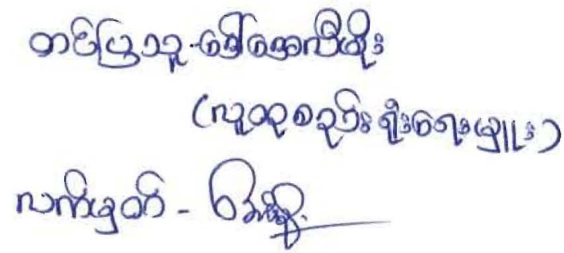 တင်ပြသူ - ဒေါ်အေလီမိုး
(လူထုစည်းရုံးရေးမှူး)
လက်မှတ် -